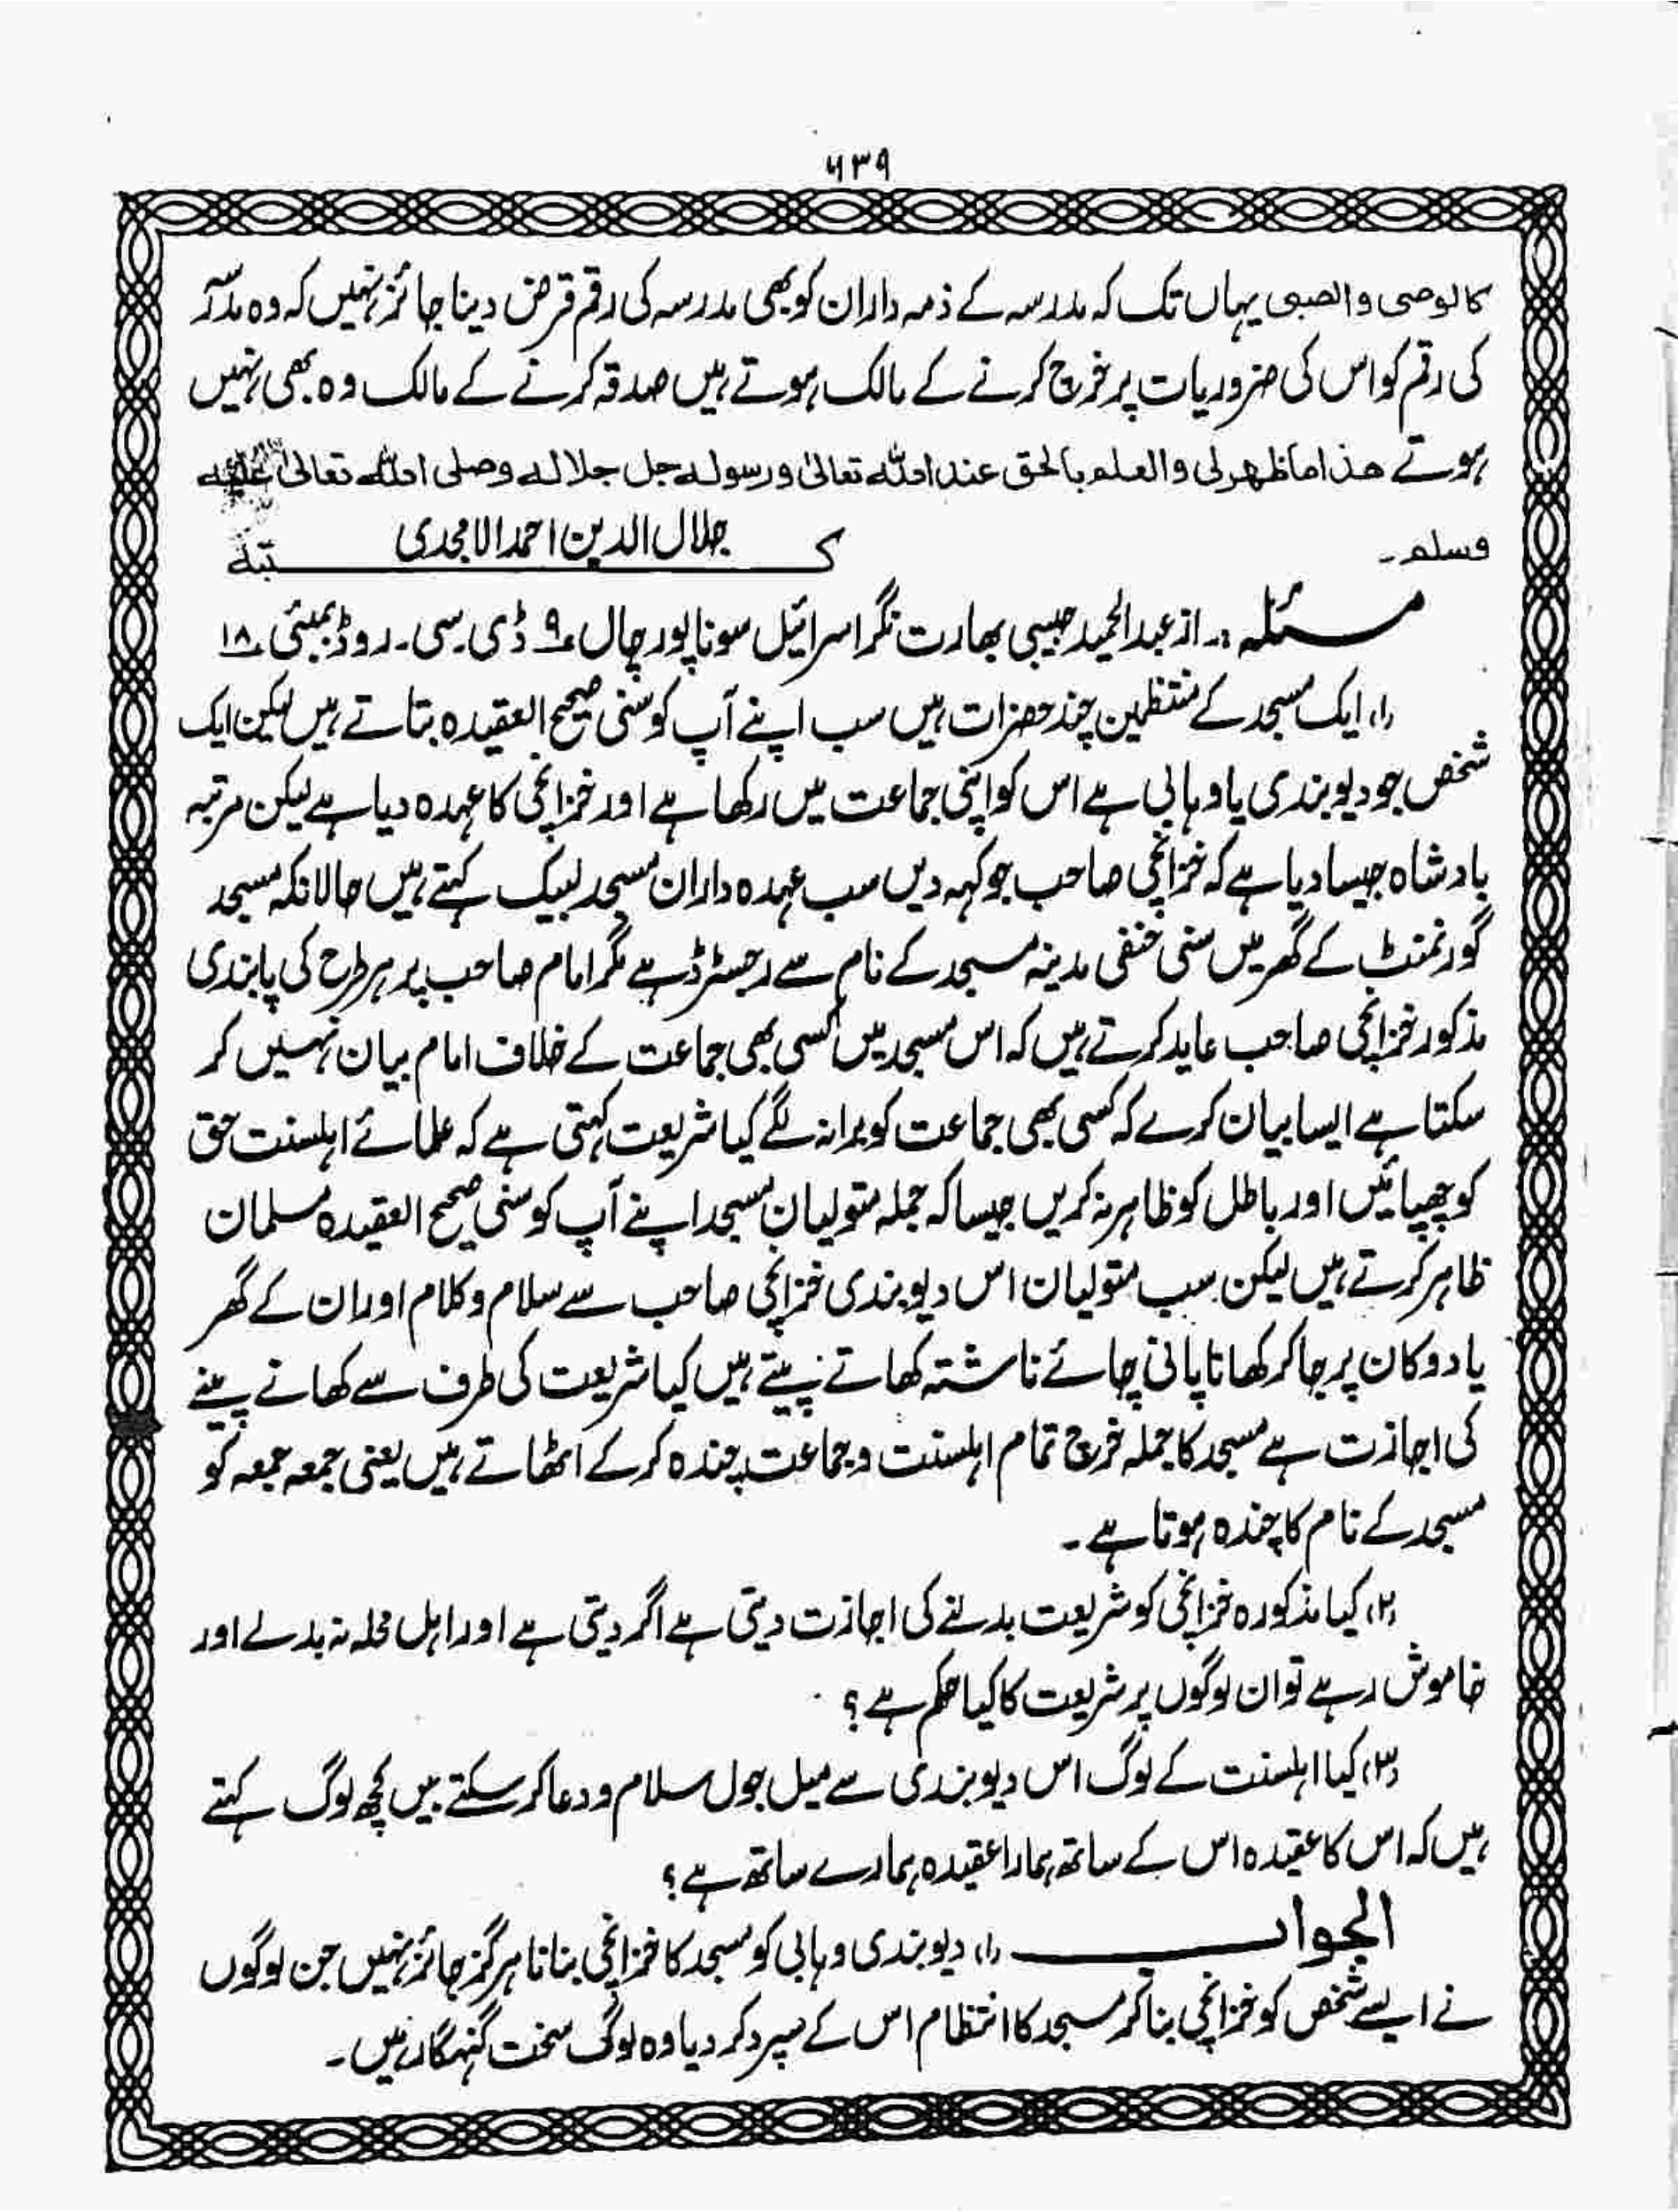 ۶۳۹
کالوصی والصبی یہاں تک کہ مدرسہ کے ذمہ داران کو بھی مدرسہ کی رقم قرض دینا جائز نہیں کہ وہ مدرسہ
کی رقم کو اس کی ضروریات پر خرچ کرنے کے مالک ہوتے ہیں صدقہ کرنے کے مالک وہ بھی نہیں
ہوتے ھذا ما ظھر لی والعلم بالحق عند اللہ تعالیٰ ورسولہ جل جلالہ وصلی اللہ تعالیٰ علیہ
وسلم۔
کـــ جلال الدین احمد الامجدی ـــتبہ
مسئلہ :۔ از عبدالحمید حبیبی بھارت نگر اسرائیل سوناپور چال ۹ ڈی۔سی۔ روڈ بمبئی ۱۸
(۱) ایک مسجد کے منتظمین چند حضرات ہیں سب اپنے آپ کو سنی صحیح العقیدہ بتاتے ہیں لیکن ایک
شخص جو دیوبندی یا وہابی ہے اس کو اپنی جماعت میں رکھا ہے اور خزانچی کا عہدہ دیا ہے لیکن مرتبہ
بادشاہ جیسا دیا ہے کہ خزانچی صاحب جو کہہ دیں سب عہدہ داران مسجد لبیک کہتے ہیں حالانکہ مسجد
گورنمنٹ کے گھر میں سنی حنفی مدینہ مسجد کے نام سے رجسٹرڈ ہے مگر امام صاحب پر ہر طرح کی پابندی
مذکور خزانچی صاحب عاید کرتے ہیں کہ اس مسجد میں کسی بھی جماعت کے خلاف امام بیان نہیں کر
سکتا ہے ایسا بیان کرے کہ کسی بھی جماعت کو برا نہ لگے کیا شریعت کہتی ہے کہ علمائے اہلسنت حق
کو چھپائیں اور باطل کو ظاہر نہ کریں جیسا کہ جملہ متولیان مسجد اپنے آپ کو سنی صحیح العقیدہ مسلمان
ظاہر کرتے ہیں لیکن سب متولیان اس دیوبندی خزانچی صاحب سے سلام و کلام اور ان کے گھر
یا دوکان پر جا کر کھانا پانی چائے ناشتہ کھاتے پیتے ہیں کیا شریعت کی طرف سے کھانے پینے
کی اجازت ہے مسجد کا جملہ خرچ تمام اہلسنت و جماعت چندہ کر کے اٹھاتے ہیں یعنی جمعہ جمعہ کو
مسجد کے نام کا چندہ ہوتا ہے۔
(۲) کیا مذکورہ خزانچی کو شریعت بدلنے کی اجازت دیتی ہے اگر دیتی ہے اور اہل محلہ نہ بدلے اور
خاموش رہے تو ان لوگوں پر شریعت کا کیا حکم ہے؟
(۳) کیا اہلسنت کے لوگ اس دیوبندی سے میل جول سلام و دعا کر سکتے ہیں کچھ لوگ کہتے
ہیں کہ اس کا عقیدہ اس کے ساتھ ہمارا عقیدہ ہمارے ساتھ ہے؟
الجواب ـــ (۱) دیوبندی وہابی کو مسجد کا خزانچی بنانا ہرگز جائز نہیں جن لوگوں
نے ایسے شخص کو خزانچی بنا کر مسجد کا انتظام اس کے سپرد کر دیا وہ لوگ سخت گنہگار ہیں۔